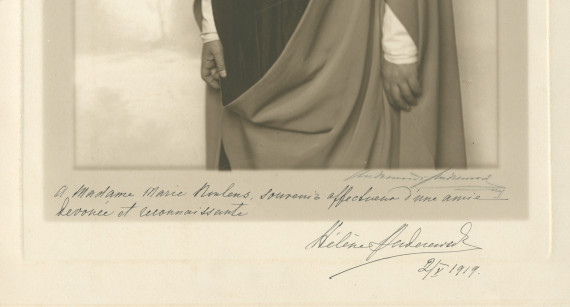 A Madame Marie Roulens, souvenir affectueux d'une amie
dévouée et reconnaissante
Hélène
2/V 1919.